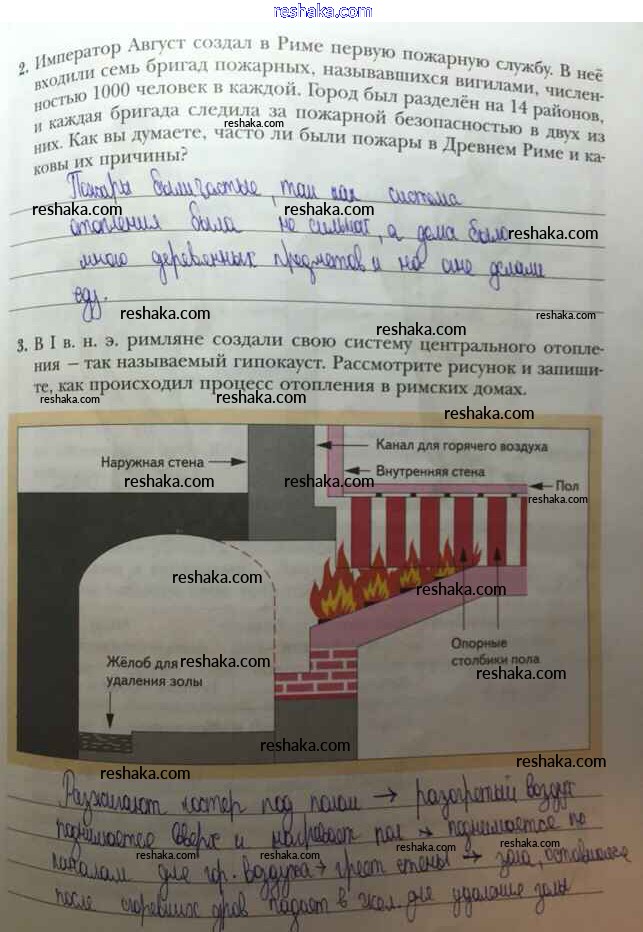 reshaka.com
2. Император Август создал в Риме первую пожарную службу. В неё
входили семь бригад пожарных, называвшихся вигилами, числен-
ностью 1000 человек в каждой. Город был разделён на 14 районов,
и каждая бригада следила за пожарной безопасностью в двух из
них. Как вы думаете, часто ли были пожары в Древнем Риме и ка-
ковы их причины?
reshaka.com
Пожары были частые, так как система
reshaka.com reshaka.com reshaka.com
отопления была не сильная, а дома было
reshaka.com
много деревянных предметов и на они делали
еду.
reshaka.com reshaka.com
3. В I в. н. э. римляне создали свою систему центрального отопле-
reshaka.com
ния – так называемый гипокауст. Рассмотрите рисунок и запиши-
те, как происходил процесс отопления в римских домах.
reshaka.com reshaka.com
reshaka.com
Канал для горячего воздуха
Наружная стена
Внутренняя стена
reshaka.com reshaka.com
Пол
reshaka.com
reshaka.com
reshaka.com
Опорные
столбики пола
Жёлоб для reshaka.com
удаления золы
reshaka.com
reshaka.com
reshaka.com
reshaka.com
Разжигают костер под полом → разогретый воздух
reshaka.com
поднимается вверх и нагревает пол → поднимается по
reshaka.com reshaka.com reshaka.com
каналам для гор. воздуха → греет стены → зола, оставшаяся
reshaka.com reshaka.com
после сгоревших дров падает в жел. для удаления золы